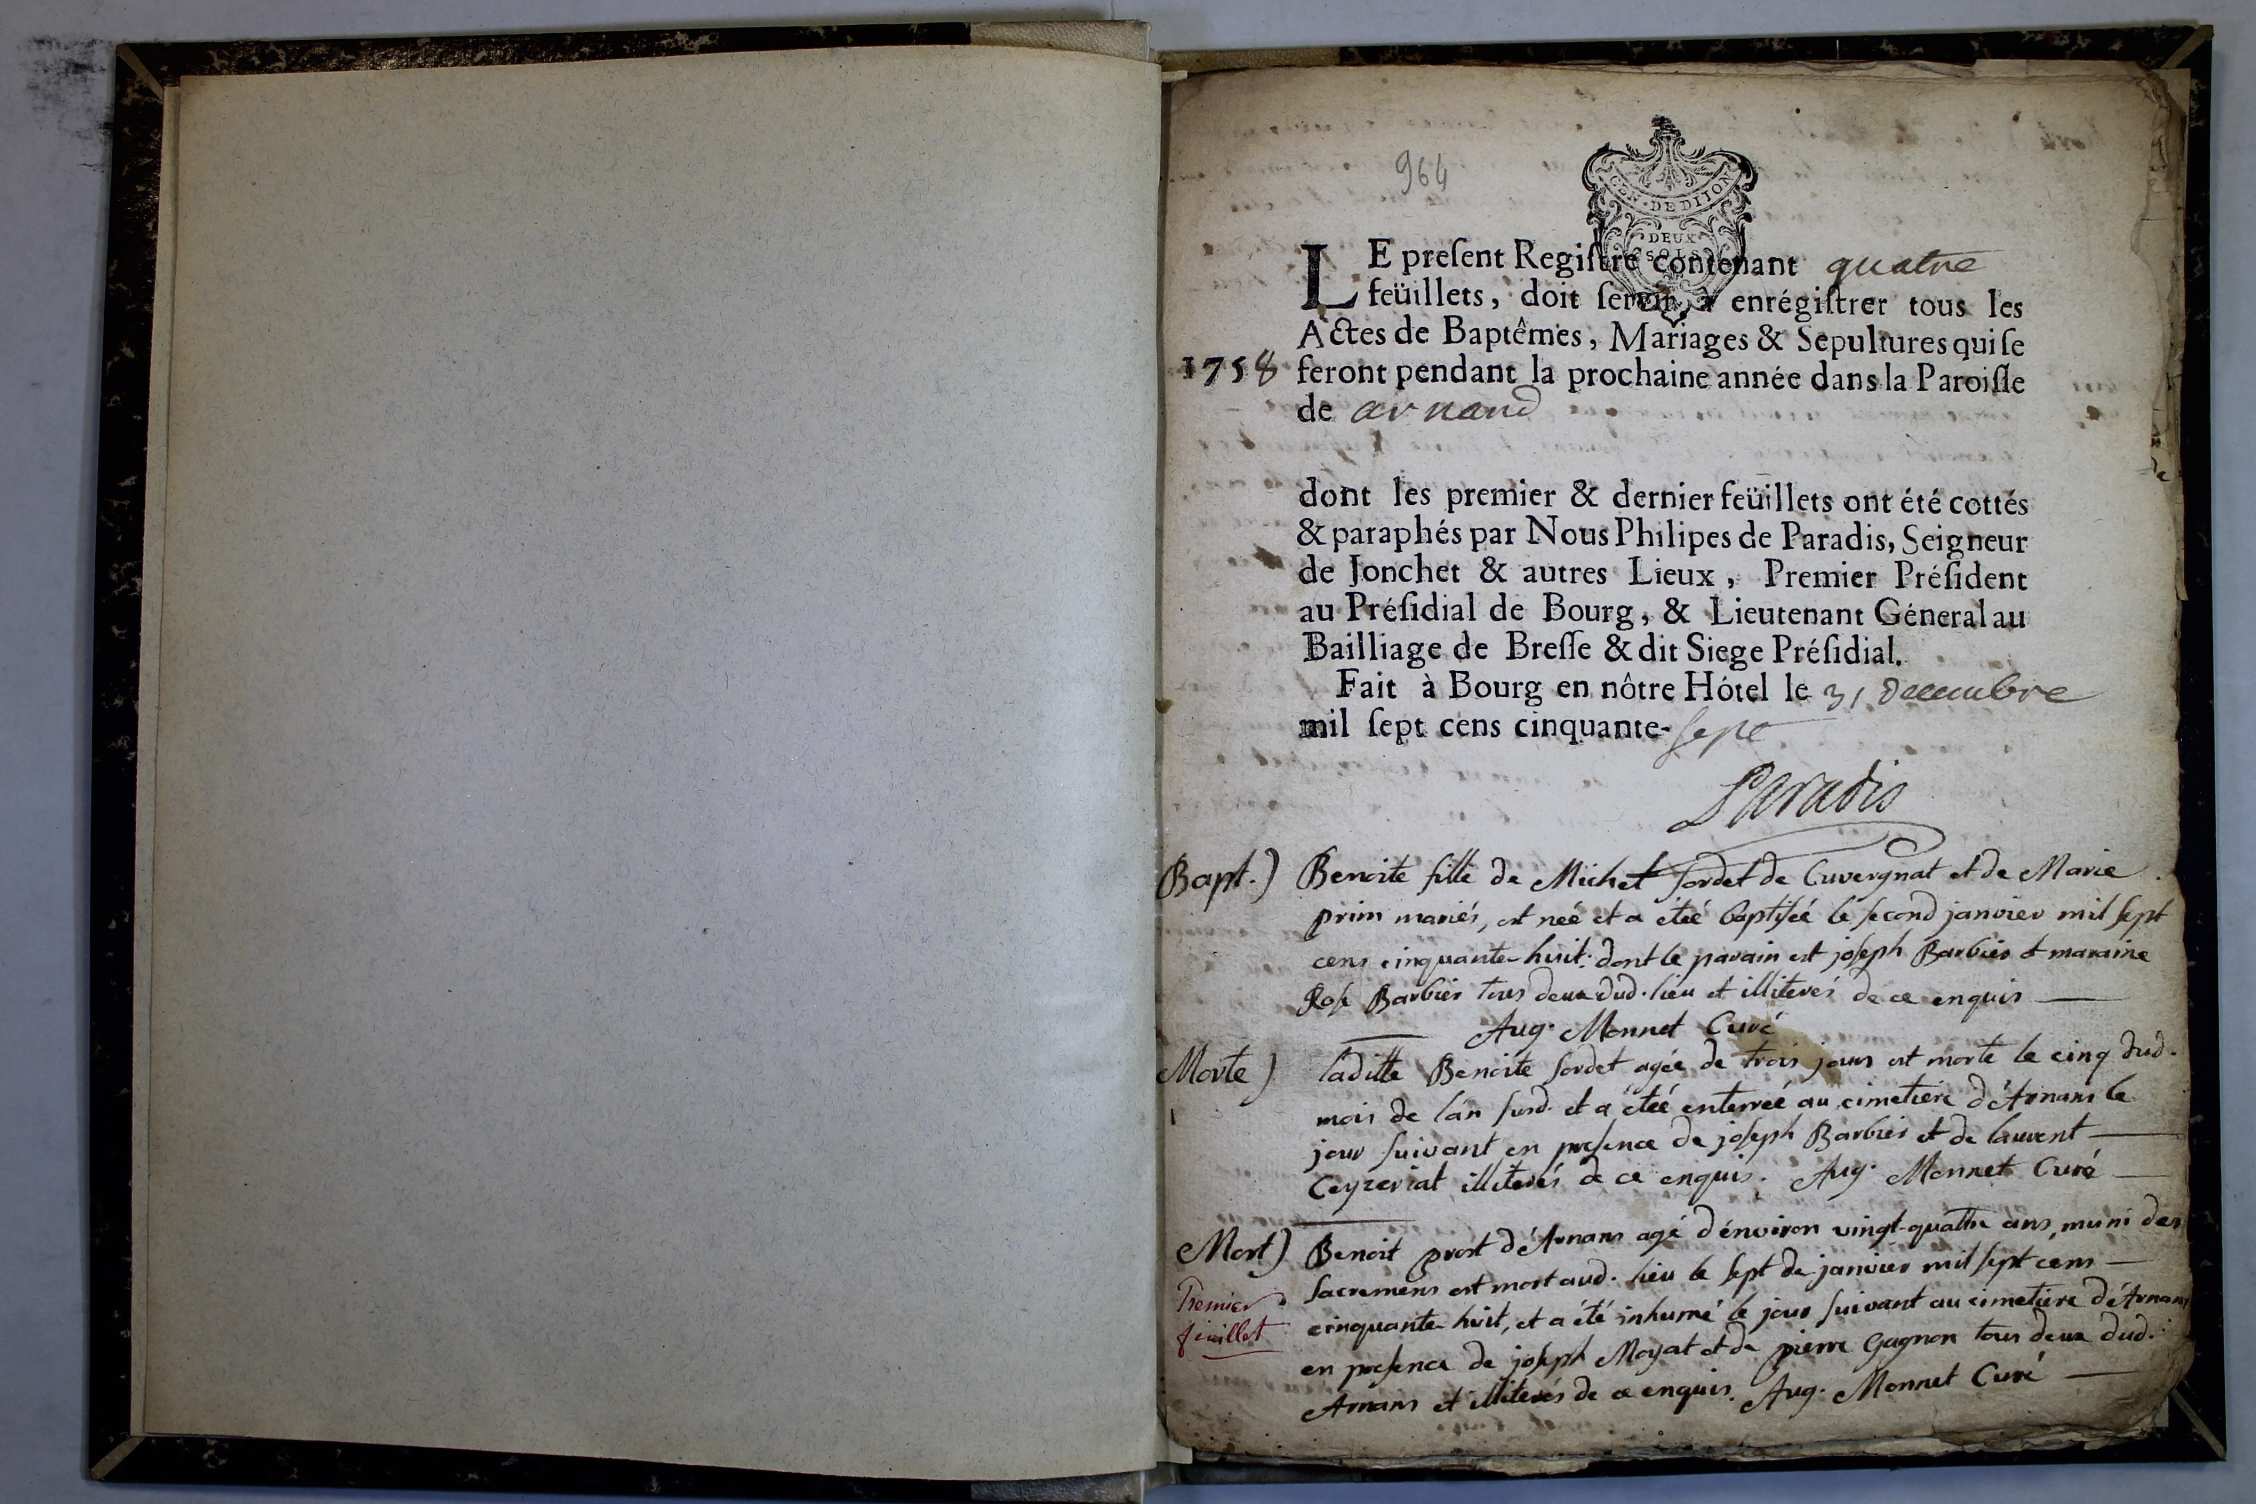 964
GEN · DE DIJON
DEUX
SOLS
LE preſent Regiſtre contenant quatre
feüillets, doit ſervir à enrégiſtrer tous les
Actes de Baptêmes, Mariages & Sepultures qui ſe
1758 feront pendant la prochaine année dans la Paroiſſe
de arnand
dont les premier & dernier feüillets ont été cottés
& paraphés par Nous Philipes de Paradis, Seigneur
de Jonchet & autres Lieux, Premier Préſident
au Préſidial de Bourg, & Lieutenant Géneral au
Bailliage de Breſſe & dit Siege Préſidial.
Fait à Bourg en nôtre Hôtel le 31 Decembre
mil ſept cens cinquante-sept
Paradis
Bapt.) Benoite fille de Michel Sordet de Cuvergnat et de Marie
prim mariés, est neé et a eteé baptiseé le second janvier mil sept
cens cinquante-huit: dont le parain est joseph Barbier et maraine
Rose Barbier tous deux dud. lieu et illiterés de ce enquis
Aug. Monnet Curé
Morte) laditte Benoite Sordet agée de trois jours est morte le cinq dud.
mois de l'an susd. et a eteé enterreé au cimetiere d'Arnans le
jour suivant en presence de joseph Barbier et de laurent
Ceyzeriat illiterés de ce enquis. Aug. Monnet Curé
Mort) Benoit prost d'Arnans agé d'environ vingt-quattre ans, muni des
Sacremens est mort aud. lieu le sept de janvier mil sept cens
Premier
cinquante-huit, et a été inhumé le jour suivant au cimetiere d'Arnans
feuillet
en presence de joseph Moyat et de pierre Gagnon tous deux dud.
Arnans et illiterés de ce enquis. Aug. Monnet Curé